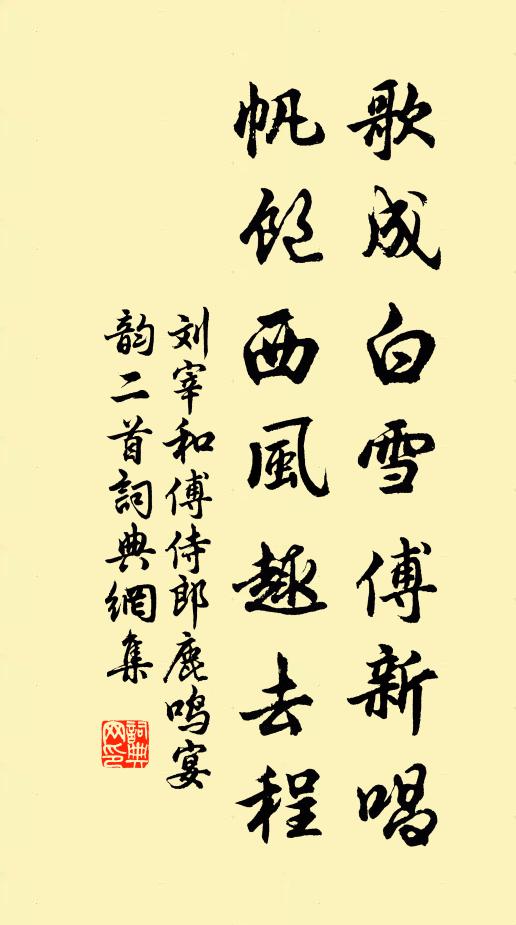 歌成白雪傅新唱
帆飽西風趣去程
刘宰和傅侍郎鹿鸣宴
韵二首詞典網集
詞典
网印